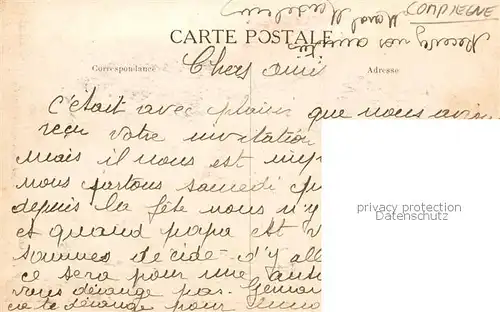 COMPIEGNE
CARTE POSTALE
Correspondance
Adresse
Recevez nos amitiés
Chers amis
C'était avec plaisir que nous avions
reçu votre invitation
mais il nous est imp
nous partons samedi
depuis la fête nous n'y
et quand papa est
sommes décidé d'y all
ce sera pour une autr
vous dérange pas.
cela dérange pour
privacy protection
Datenschutz